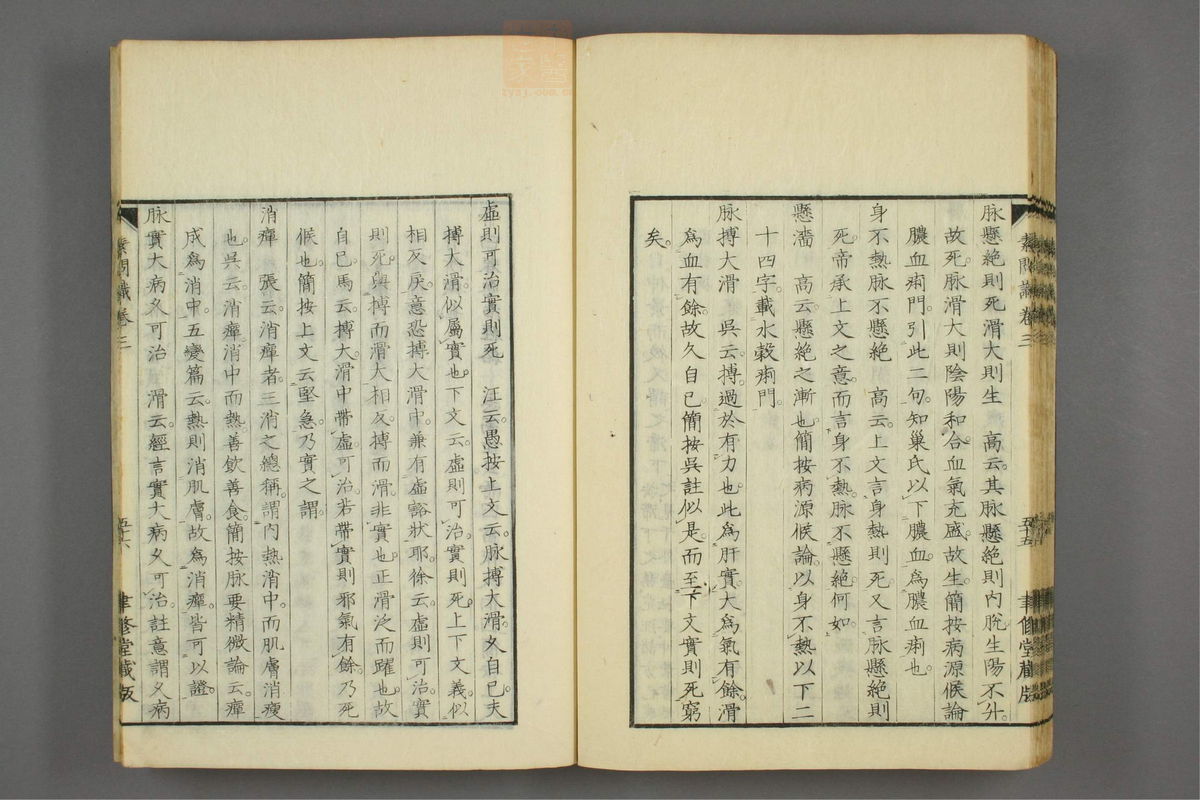 脉懸絶則死滑大則生　高云其脉懸絶則内脫生陽不升
故死脉滑大則陰陽和合血氣充盛故生簡按病源候論
膿血痢門引此二句知巢氏以下膿血爲膿血痢也
身不熱脉不懸絶　高云上文言身熱則死又言脉懸絶則
死帝承上文之意而言身不熱脉不懸絶何如
懸濇　高云懸絶之漸也簡按病源候論以身不熱以下二
十四字載水穀痢門
脉搏大滑　吳云搏過於有力也此爲肝實大爲氣有餘滑
爲血有餘故久自已簡按吳註似是而至下文實則死窮
矣
素問識卷三
五十五
聿修堂藏版
虛則可治實則死　汪云愚按上文云脉搏大滑久自已夫
搏大滑似屬實也下文云虛則可治實則死上下文義似
相反戾意恐搏大滑中兼有虛豁狀耶徐云虛則可治實
則死與搏而滑大相反搏而滑非實也正滑泛而躍也故
自已馬云搏大滑中帶虛可治若帶實則邪氣有餘乃死
候也簡按上文云堅急乃實之謂
消癉　張云消癉者三消之總稱謂内熱消中而肌膚消瘦
也吳云消癉消中而熱善飲善食簡按脉要精微論云癉
成爲消中五變篇云熱則消肌膚故爲消癉皆可以證
脉實大病久可治　滑云經言實大病久可治註意謂久病
素問識卷三
五十六
聿修堂藏版